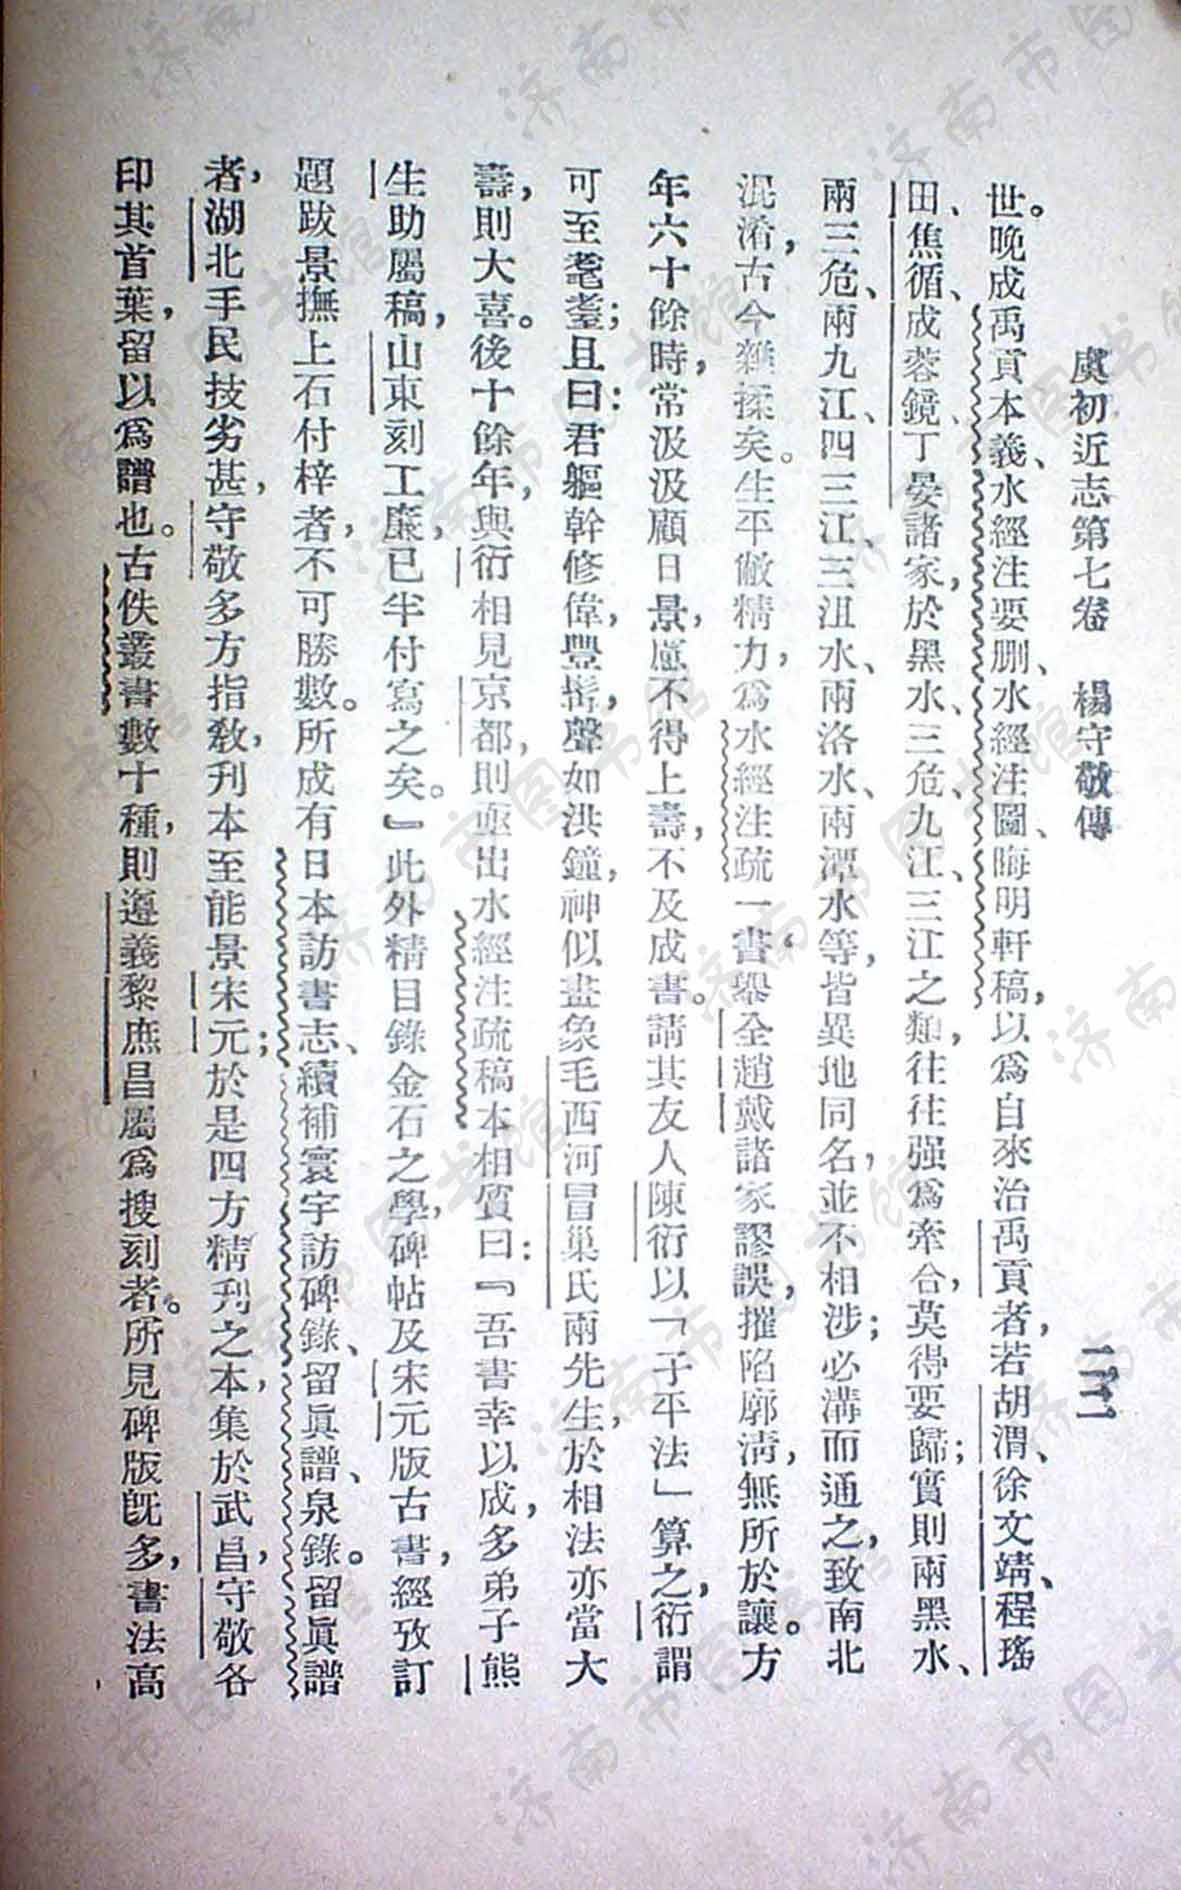 虞初近志第七卷　楊守敬傳　一三二
世。晚成禹貢本義、水經注要删、水經注圖、晦明軒稿，以爲自來治禹貢者，若胡渭、徐文靖、程瑤
田、焦循、成蓉鏡、丁晏諸家，於黑水、三危、九江、三江之類，往往强爲牽合，莫得要歸；實則兩黑水、
兩三危、兩九江、四三江、三沮水、兩洛水、兩潭水等，皆異地同名，並不相涉；必溝而通之，致南北
混淆，古今雜揉矣。生平敝精力，爲水經注疏一書，舉全趙戴諸家謬誤，摧陷廓淸，無所於讓。方
年六十餘時，常汲汲顧日景，慮不得上壽，不及成書。請其友人陳衍以「子平法」算之，衍謂
可至耄耋；且曰：君軀幹修偉，豐髯，聲如洪鐘，神似畫象毛西河冒巢氏兩先生，於相法亦當大
壽，則大喜。後十餘年，與衍相見京都，則亟出水經注疏稿本相質曰：『吾書幸以成，多弟子熊
生助屬稿，山東刻工廉，已半付寫之矣。』此外精目錄金石之學，碑帖及宋元版古書，經攷訂
題跋景撫上石付梓者，不可勝數。所成有日本訪書志、續補寰宇訪碑錄、留眞譜、泉錄。留眞譜
者，湖北手民技劣甚，守敬多方指敎，刋本至能景宋元；於是四方精刋之本，集於武昌，守敬各
印其首葉，留以爲譜也。古佚叢書數十種，則遵義黎庶昌屬爲搜刻者。所見碑版旣多，書法高
济南市图书馆